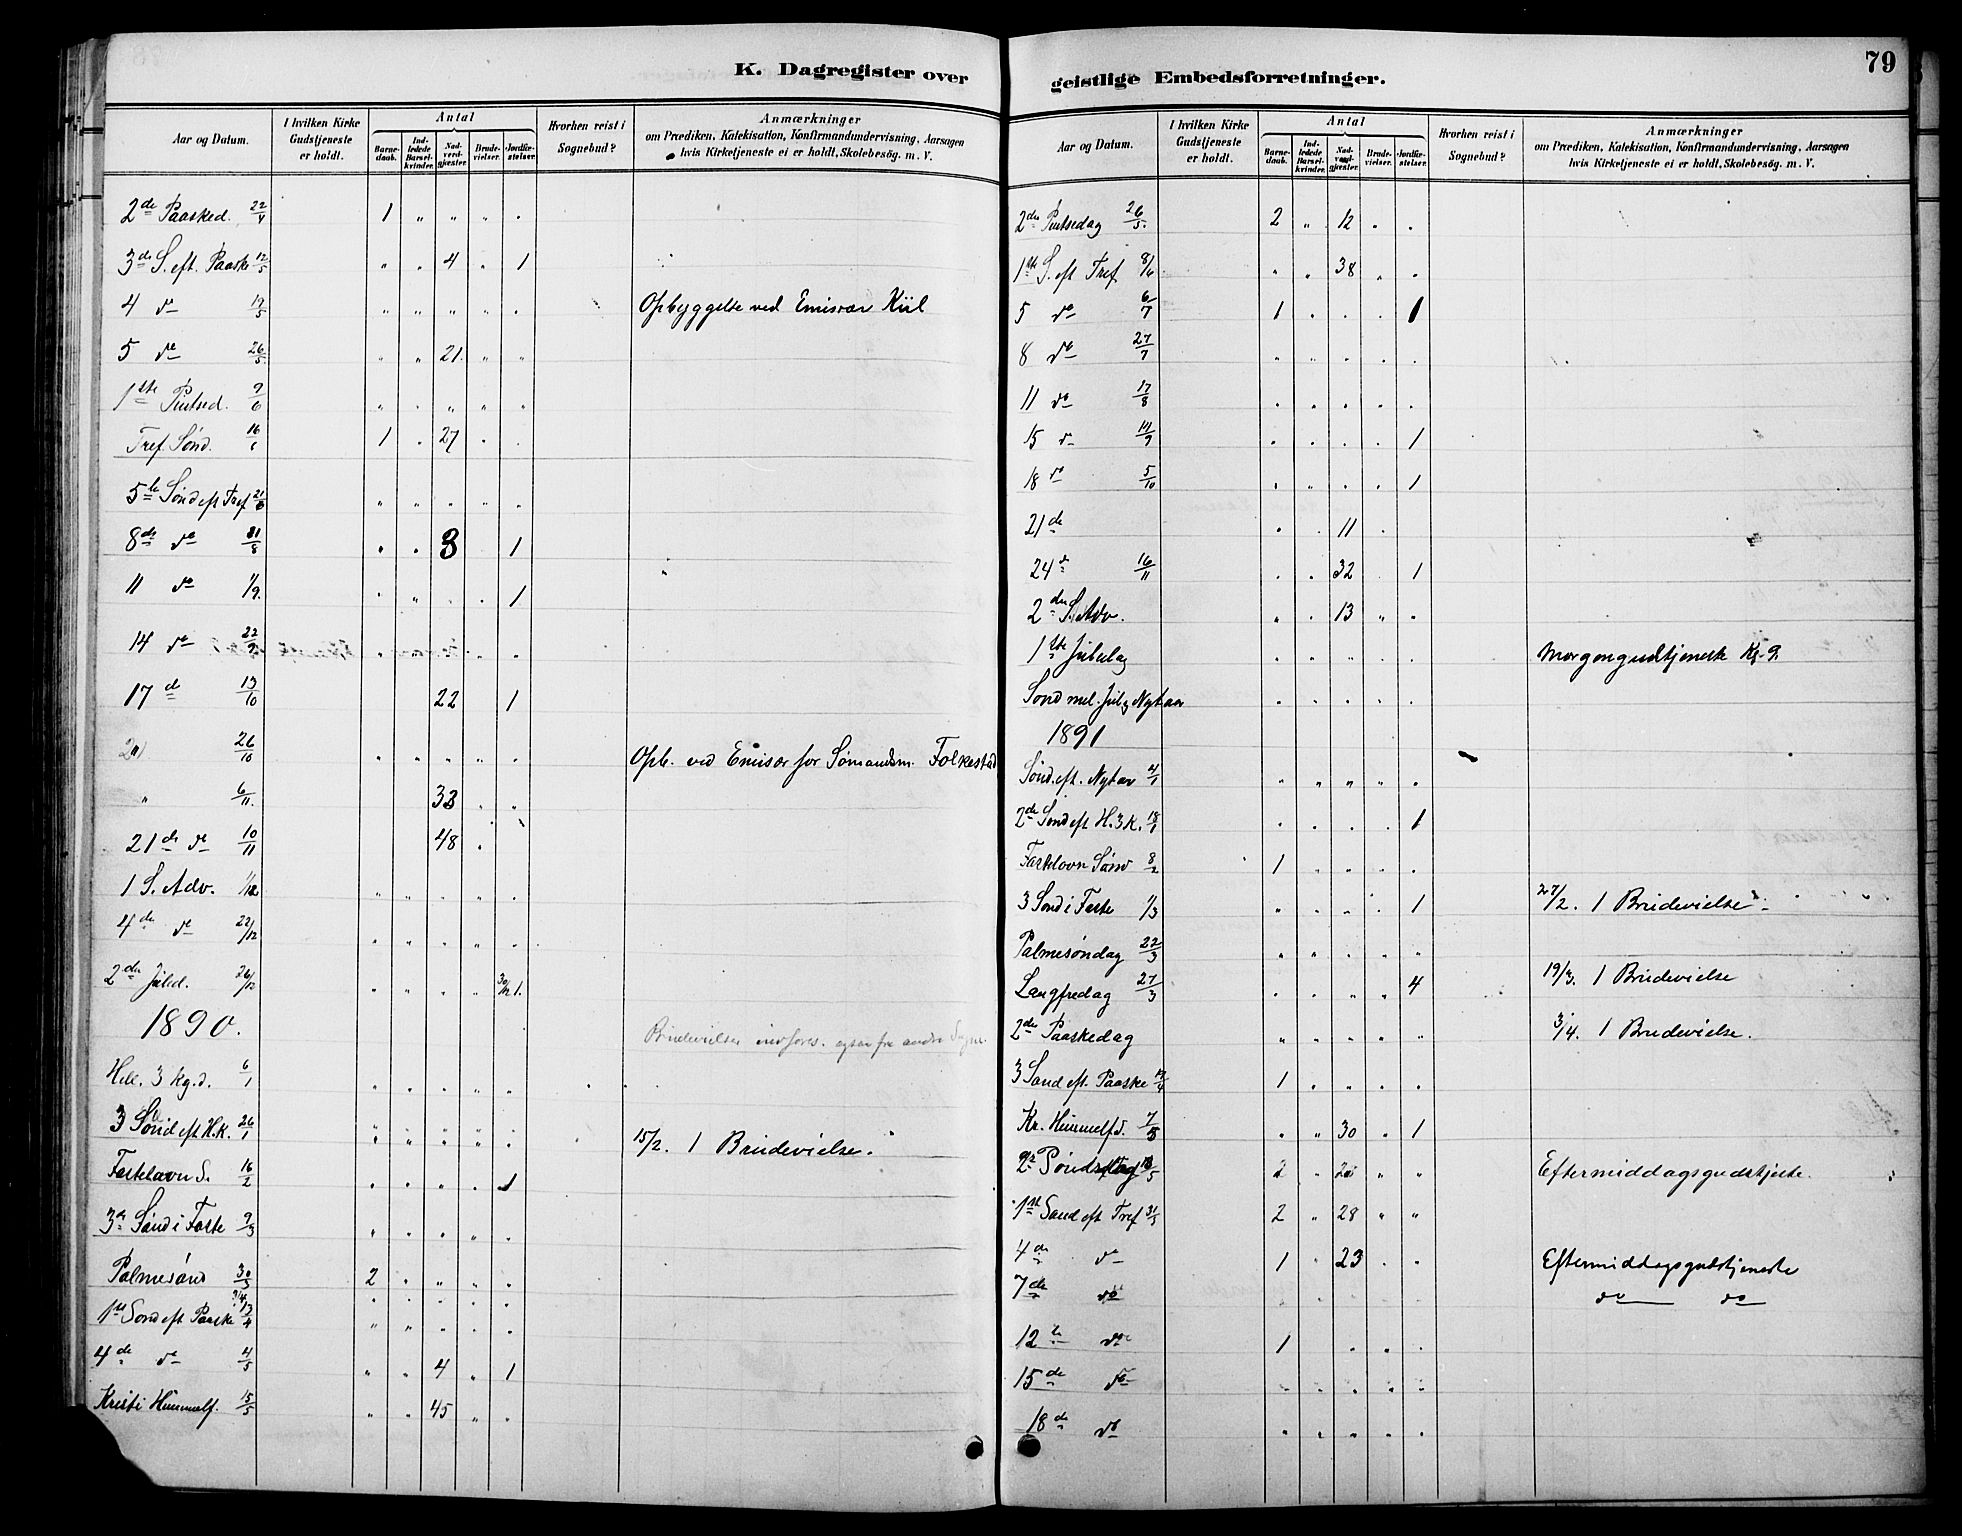 K. Dagregister over
Aar og Datum. I hvilken Kirke Gudstjeneste er holdt. Antal Barnedaab. Indledede Barselkvinder. Nadverdgjæster. Brudevielser. Jordfæstelser. Hvorhen reist i Sognebud? Anmærkninger om Prædiken, Katekisation, Konfirmandundervisning, Aarsagen hvis Kirketjeneste ei er holdt, Skolebesøg. m. V.
2de Paasked. 22/4 1 " " " "
3de S. eft. Paaske 12/5 " " 4 " 1
4 do 19/5 " " " " " Opbyggelse ved Emisær Kiil
5 do 26/5 " " 21 " "
1ste Pintsed. 9/6 " " " " "
Tref. Sønd. 16/6 1 " 27 " "
5te Sønd eft Tref 21/ " " " " "
8de do /8 " " 8 1
11 do 1/9. " " " " 1
14 do 22/9 " " " " "
17 de 13/10 22 1
26/10 " " " " " Opb. ved Emisær for Sømandsm. Folkestad
" 6/11. 33 " "
21de do 10/11 48 "
1 S. Adv. 1/12 " " " " "
4de do 22/12 " " " " "
2den Juled. 26/12 " " " " 30/12 1.
1890. Brudevielser
Hell. 3 Kg. d. 6/1 " " " " "
3 Sønd eft H.K. 26/1 " " " " " 15/2. 1 Brudevielse.
Fastelavn S. 16/2 " " " " 1
3de Sønd i Faste 9/3 " " " " "
Palmesønd 30/3 2 " " " "
1ste Sønd eft Paaske 13/4 " " " " "
4de do 4/5 " " 4 " 1
Kristi Himmelf. 15/5 " " 45 " "
79
geistlige Embedsforretninger.
Aar og Datum. I hvilken Kirke Gudstjeneste er holdt. Antal Barnedaab. Indledede Barselkvinder. Nadverdgjæster. Brudevielser. Jordfæstelser. Hvorhen reist i Sognebud? Anmærkninger om Prædiken, Katekisation, Konfirmandundervisning, Aarsagen hvis Kirketjeneste ei er holdt, Skolebesøg. m. V.
2den Pintsedag 26/5. 2 " 12 " "
1ste S. eft Tref 8/6 " " 38 " "
5 do 6/7 1 " " " 1
8 do 27/7 " " " " "
11 do 17/8 " " " " "
15 do 14/9 " " " " 1
18 do 5/10 " " " " 1
21de " " 11 "
24de 16/11 " " 32 " 1
2den S. i Adv. " " 13 " "
1ste Juledag " " " " " Morgengudtjeneste Kl. 9
Sønd mel. Jul og Nytaar " " " " "
1891
Sønd. eft. Nytaar 4/1 " " " " "
2de Sønd eft H. 3 K. 18/1 " " " " 1
Fastelavn Sønd 8/2 1 " " " "
3 Sønd i Faste 1/3 " " " " 1 27/2. 1 Brudevielse
Palmesøndag 22/3 " " " " "
Langfredag 27/3 " " " " 4 19/3. 1 Brudevielse
2den Paaskedag " " " " " 3/4. 1 Brudevielse.
3 Sønd eft. Paaske 19/4 1 " " " "
Kr. Himmelfd. 7/5 " " 30 " 1
2 " " " Eftermiddagsgudstjeste.
1ste Sønd eft Tref 31/5 2 " 28 " "
4de do 1 " 23 " " Eftermiddagsgudstjeneste
7de do " " " " " do do
12te do 1 " " "
15de do " " " " "
18de do " " " " "